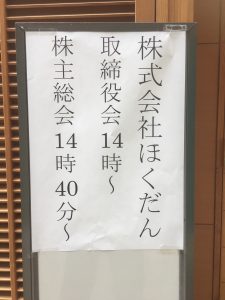 株式会社ほくだん
取締役会14時~
株主総会14時40分~